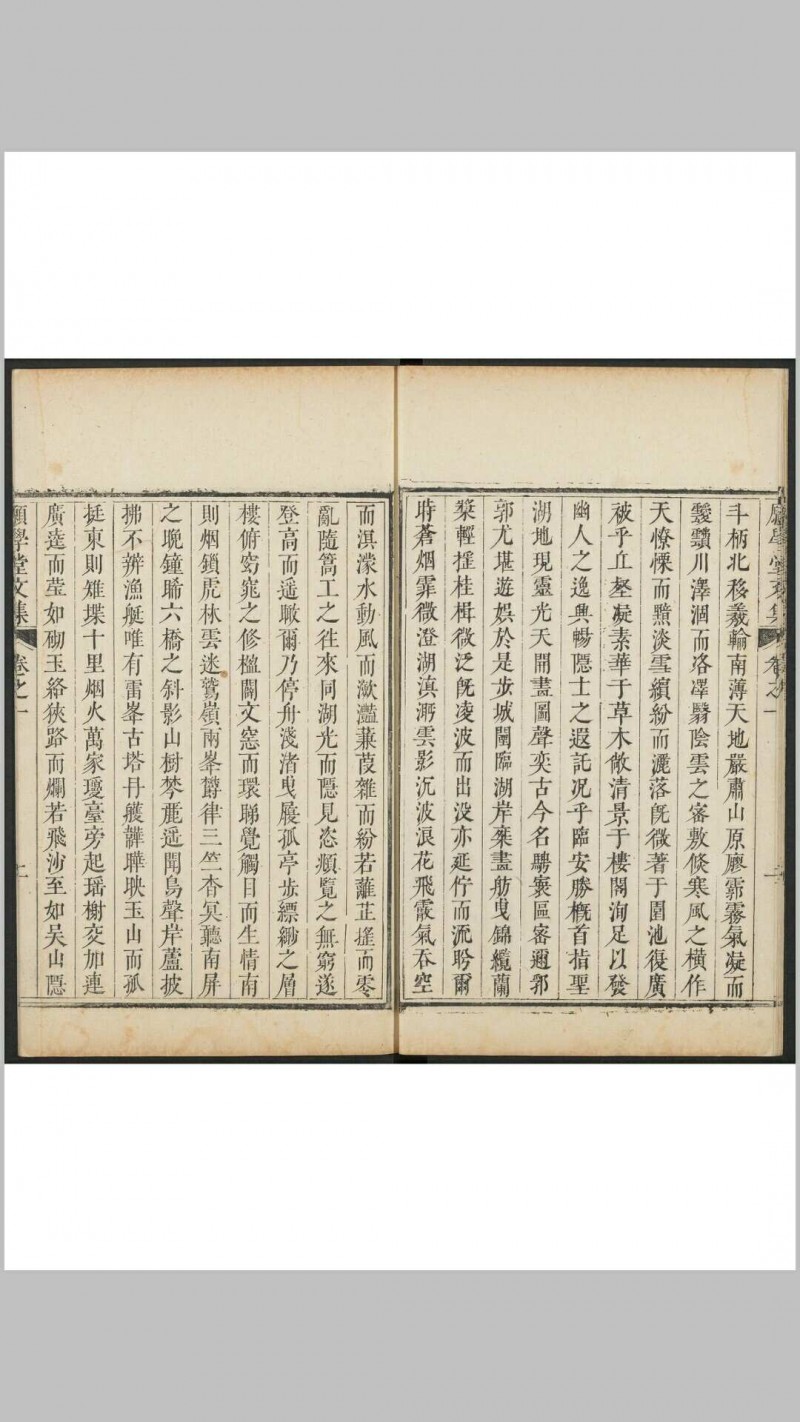 願學堂文集 卷之一
斗柄北移羲輪南薄天地嚴肅山原廖霩霧氣凝而
靉靆川澤涸而洛澤翳陰雲之密敷倏寒風之橫作
天憭慄而黯淡雪繽紛而灑落旣微著于園池復廣
被乎丘壑凝素華于草木敞清景于樓閣洵足以發
幽人之逸興暢隱士之遐託況乎臨安勝概首指聖
湖地現靈光天開畫圖聲奕古今名騁寰區密邇郭
郛尤堪遊娛於是步城闉臨湖岸棄畫舫曳錦纜蘭
槳輕搖桂楫微泛旣凌波而出沒亦延佇而流盼爾
時蒼烟霏微澄湖滇沔雲影沉波浪花飛霰氣吞空
而淇濛水動風而瀲灩蒹葭雜而紛若蘺芷搖而零
亂隨篙工之徃來同湖光而隱見恣頫覽之無窮遂
登高而遥瞰爾乃停舟淺渚曳屐孤亭步縹緲之層
樓俯窈窕之修楹闢文窓而環睇覺觸目而生情南
則烟鎖虎林雲迷鷲嶺兩峯欝律三竺杳冥聽南屏
之晚鐘睎六橋之斜影山樹棽麗遥聞鳥聲岸蘆披
拂不辨漁艇唯有雷峯古塔丹雘韡曄映玉山而孤
挺東則雉堞十里烟火萬家瓊臺旁起瑶榭交加連
廣逵而瑩如砌玉絡狹路而爛若飛沙至如吳山隱
願學堂文集 卷之一 十一